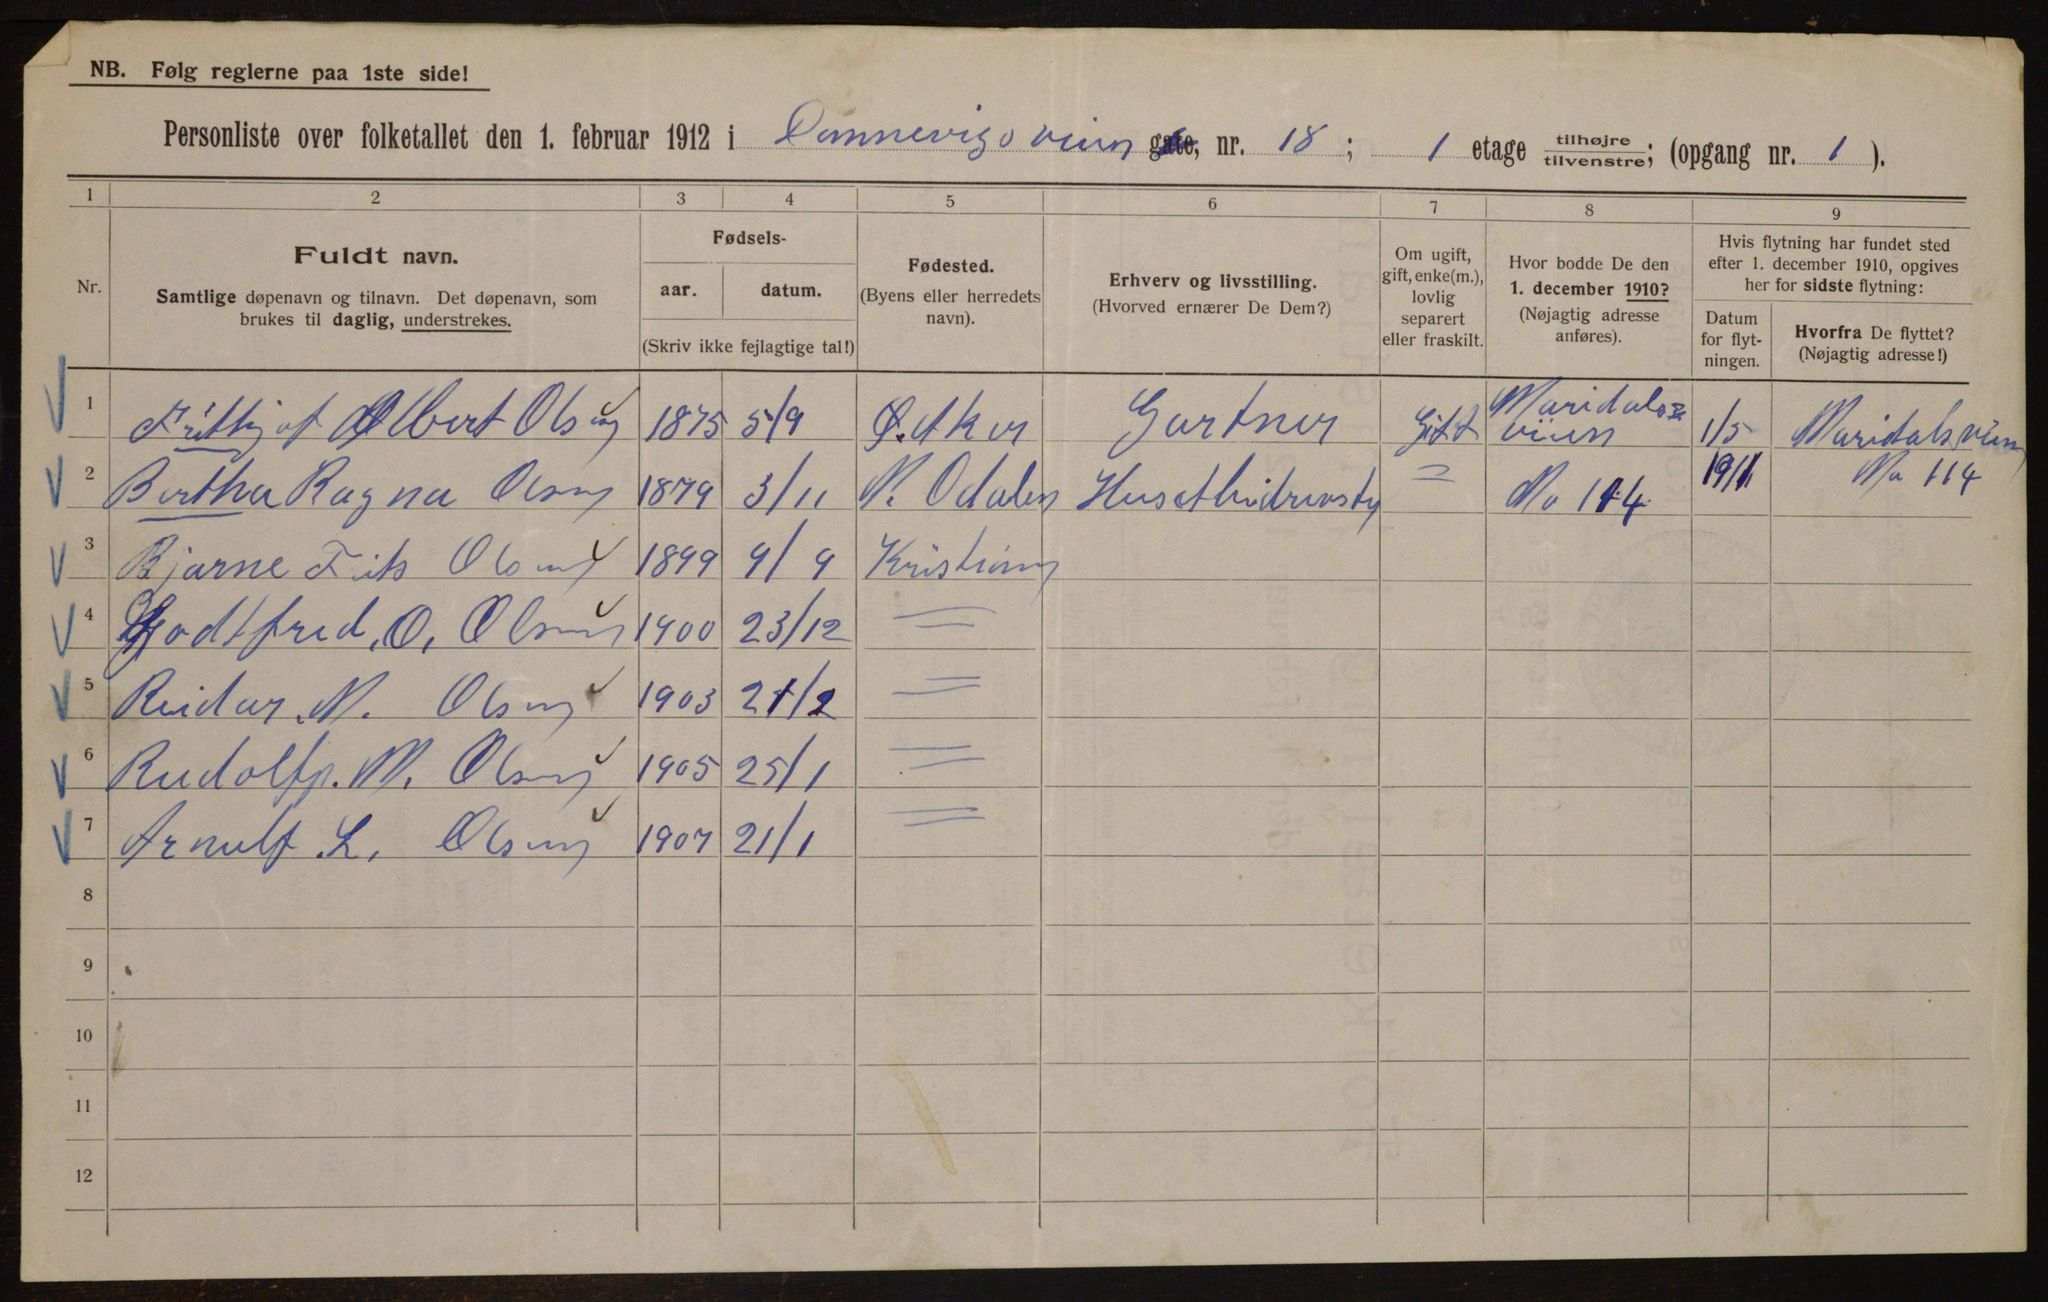 NB. Følg reglerne paa 1ste side!
Personliste over folketallet den 1. februar 1912 i Dannevigsveien gate, nr. 18 ; 1 etage tilhøjre tilvenstre; (opgang nr. 1 ).
1 2 3 4 5 6 7 8 9
Nr.
Fuldt navn.
Samtlige døpenavn og tilnavn. Det døpenavn, som
brukes til daglig, understrekes.
Fødsels-
aar. datum.
(Skriv ikke fejlagtige tal!)
Fødested.
(Byens eller herredets
navn).
Erhverv og livsstilling.
(Hvorved ernærer De Dem?)
Om ugift,
gift, enke(m.),
lovlig
separert
eller fraskilt.
Hvor bodde De den
1. december 1910?
(Nøjagtig adresse
anføres).
Hvis flytning har fundet sted
efter 1. december 1910, opgives
her for sidste flytning:
Datum
for flyt-
ningen.
Hvorfra De flyttet?
(Nøjagtig adresse!)
1 Frithjof Albert Olsen 1875 5/9 Ø. Aker Gartner Gift Maridals veien 1/5 Maridalsveien
2 Berthea Ragna Olsen 1879 3/11 N. Odalen Husethidrivsty = No 114 1911 No 114
3 Bjarne Frits Olsen 1899 9/9 Kristiania
4 Godtfred. O. Olsen 1900 23/12 =
5 Reidar. N. Olsen 1903 21/2 =
6 Rudolf. M. Olsen 1905 25/1 =
7 Arnulf. L. Olsen 1907 21/1 =
8
9
10
11
12